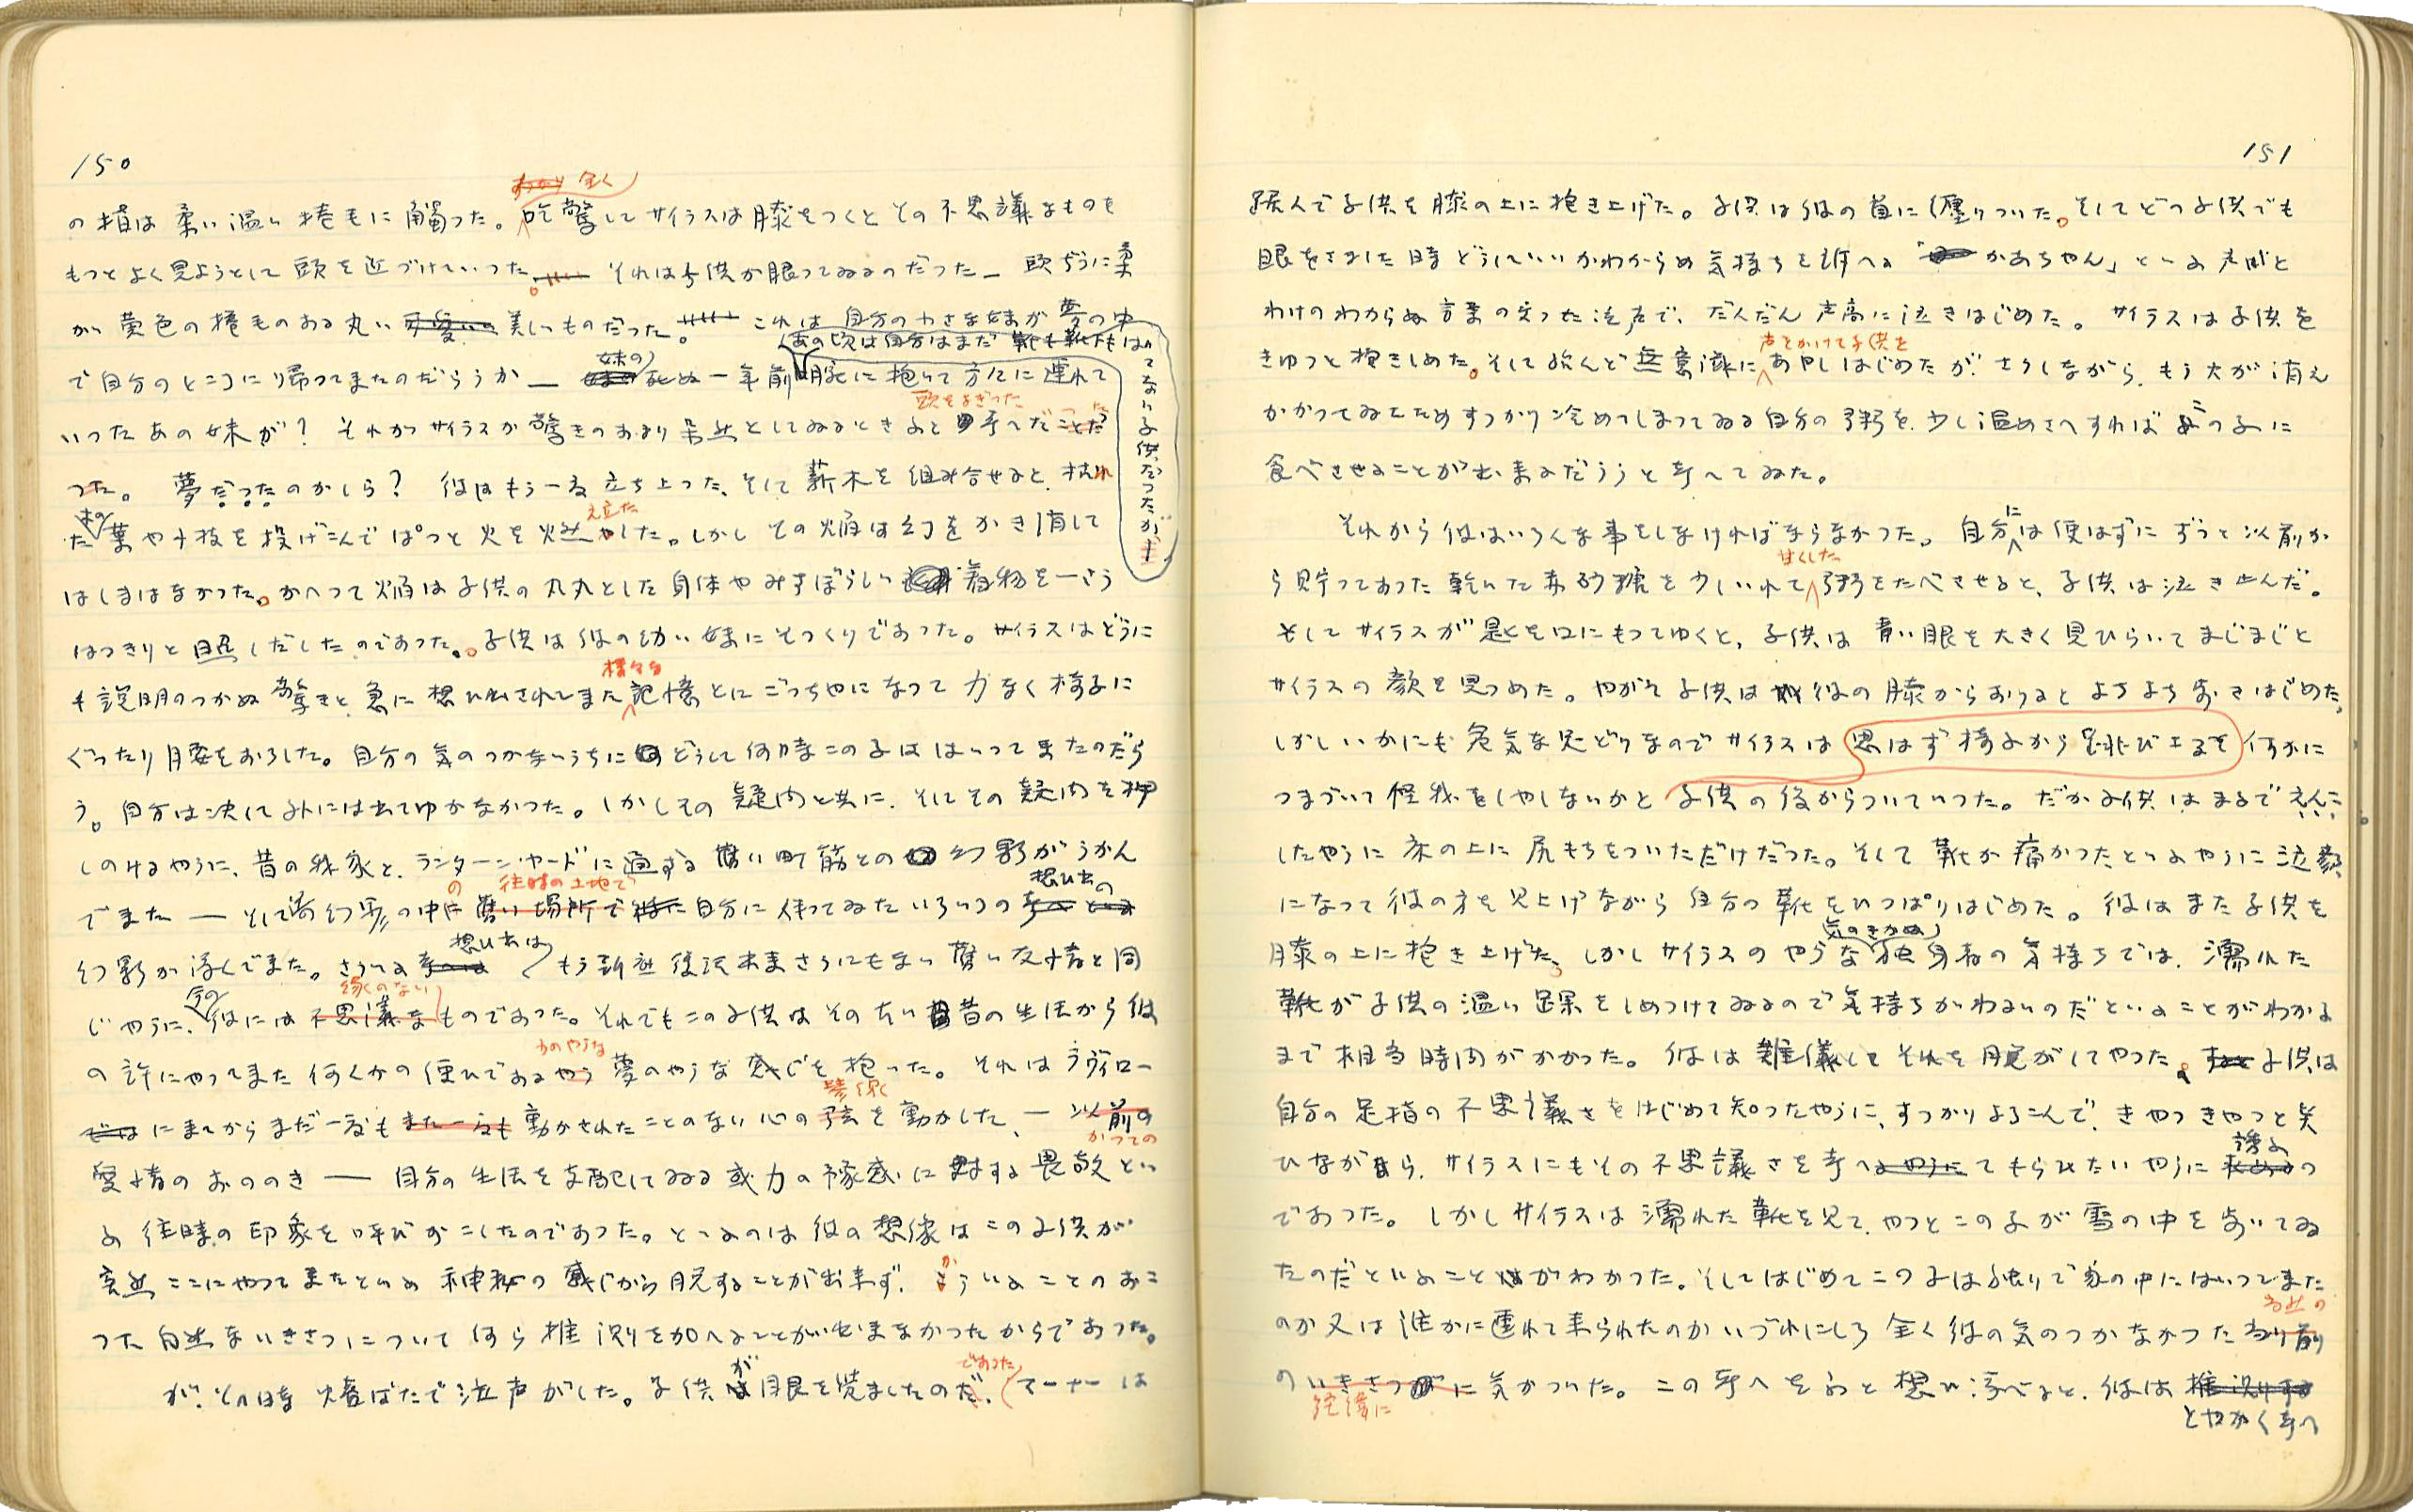 150
の指は柔い温い捲毛に觸つた。全く吃驚してサイラスは膝をつくとその不思議なものを
もつとよく見ようとして頭を近づけていつた。それは子供が眠つてゐるのだつた— 頭ぢうに柔
かい黄色の捲毛のある丸い可愛いの美しいものだつた。これは自分の小さな妹が夢の中
で自分のところに帰つてきたのだらうか— 妹の死ぬ一年前(あの頃は自分はまだ靴も靴下もはいてない子供だつたが)腕に抱いて方々に連れて
いつたあの妹が? それがサイラスが驚きのあまり呆然としてゐるときふと頭をよぎつた考へだ
つた。 夢だつたのかしら? 彼はもう一度立ち上つた、そして薪木を組み合せると、枯れ
た木の葉や小枝を投げこんでぱつと火を燃え立たした。しかしその焔は幻をかき消して
はしまはなかつた。かへつて焔は子供の丸丸とした身体やみすぼらしい着物を一さう
はつきりと照しだしたのであつた。子供は彼の幼い妹にそつくりであつた。サイラスはどうに
も説明のつかぬ驚きと、急に想ひ出されてきた様々な記憶とにごつちやになつて力なく椅子に
ぐつたり腰をおろした。自分の気のつかないうちにどうして何時この子ははいつてきたのだら
う。自分は決して外には出てゆかなかつた。しかしその疑問と共に、そしてその疑問を押
しのけるやうに、昔の我家と、ランターン・ヤードに通ずる舊い町筋との幻影がうかん
できた— そして幻影の中の往時の土地で自分に伴つてゐたいろいろの想ひ出の
幻影が浮んできた。さういふ想ひ出はもう到底復活出来さうにもない舊い友情と同
じやうに、今の彼には縁のないものであつた。それでもこの子供はその遠い昔の生活から彼
の許にやつてきた何らかの使ひであるかのやうな夢のやうな感じを抱いた。それはラヴィロー
にきてからまだ一度も動かされたことのない心の琴線を動かした、—かつての
愛情のおののき— 自分の生活を支配してゐる或力の予感に対する畏敬とい
ふ往時の印象を呼びおこしたのであつた。といふのは彼の想像はこの子供が
突然ここにやつてきたといふ神秘の感じから脱することが出来ず、かういふことのおこ
つた自然ないきさつについて何ら推測を加へることが出来なかつたからであつた。
が、その時爐ばたで泣声がした。子供が目眼を覚ましたのであつた、マーナーは
151
跼んで子供を膝の上に抱き上げた。子供は彼の首に纏りついた。そしてどの子供でも
眼をさました時どうしていいかわからぬ気持ちを訴へる「かあちやん」といふ声と
わけのわからぬ言葉の交つた泣声で、だんだん声高に泣きはじめた。サイラスは子供を
きゆつと抱きしめた。そして殆んど無意識に声をかけて子供をあやしはじめたが、さうしながら、もう火が消え
かかつてゐるためすつかり冷めてしまつてゐる自分の粥を、少し温めさへすればこの子に
食べさせることが出来るだらうと考へてみた。
それから彼はいろんな事をしなければならなかつた。自分には使はずにずつと以前か
ら貯つてあつた乾いた赤砂糖を少しいれて甘くした粥をたべさせると、子供は泣き止んだ。
そしてサイラスが匙を口にもつてゆくと、子供は青い眼を大きく見ひらいてまじまじと
サイラスの顔を見つめた。やがて子供は彼の膝からおりるとよちよち歩きはじめた、
しかしいかにも危気な足どりなのでサイラスは思はず椅子から跳び上ると何かに
つまづいて怪我をしやしないかと子供の後からついていつた。だが子供はまるでえんこ
したやうに床の上に尻もちをついただけだつた。そして靴が痛かつたといふやうに泣顔
になつて彼の方を見上げながら自分の靴をひつぱりはじめた。彼はまた子供を
膝の上に抱き上げた、しかしサイラスのやうな気のきかぬ独身者の気持ちでは、濡れた
靴が子供の温い踝をしめつけてゐるので気持ちがわるいのだといふことがわかる
まで相当時間がかかつた。彼は難儀してそれを脱がしてやつた。子供は
自分の足指の不思議さをはじめて知つたやうに、すつかりよろこんで、きやつきやつと笑
ひながら、サイラスにもその不思議さを考へてもらひたいやうに誘ふの
であつた。しかしサイラスは濡れた靴を見て、やつとこの子が雪の中を歩いてゐ
たのだといふことがわかつた。そしてはじめてこの子は独りで家の中にはいつてきた
のか又は誰かに連れて来られたのかいづれにしろ全く彼の気のつかなかつた当然の
経緯に気がついた。この考へをふと想ひ浮べると、彼は
とやかく考へ